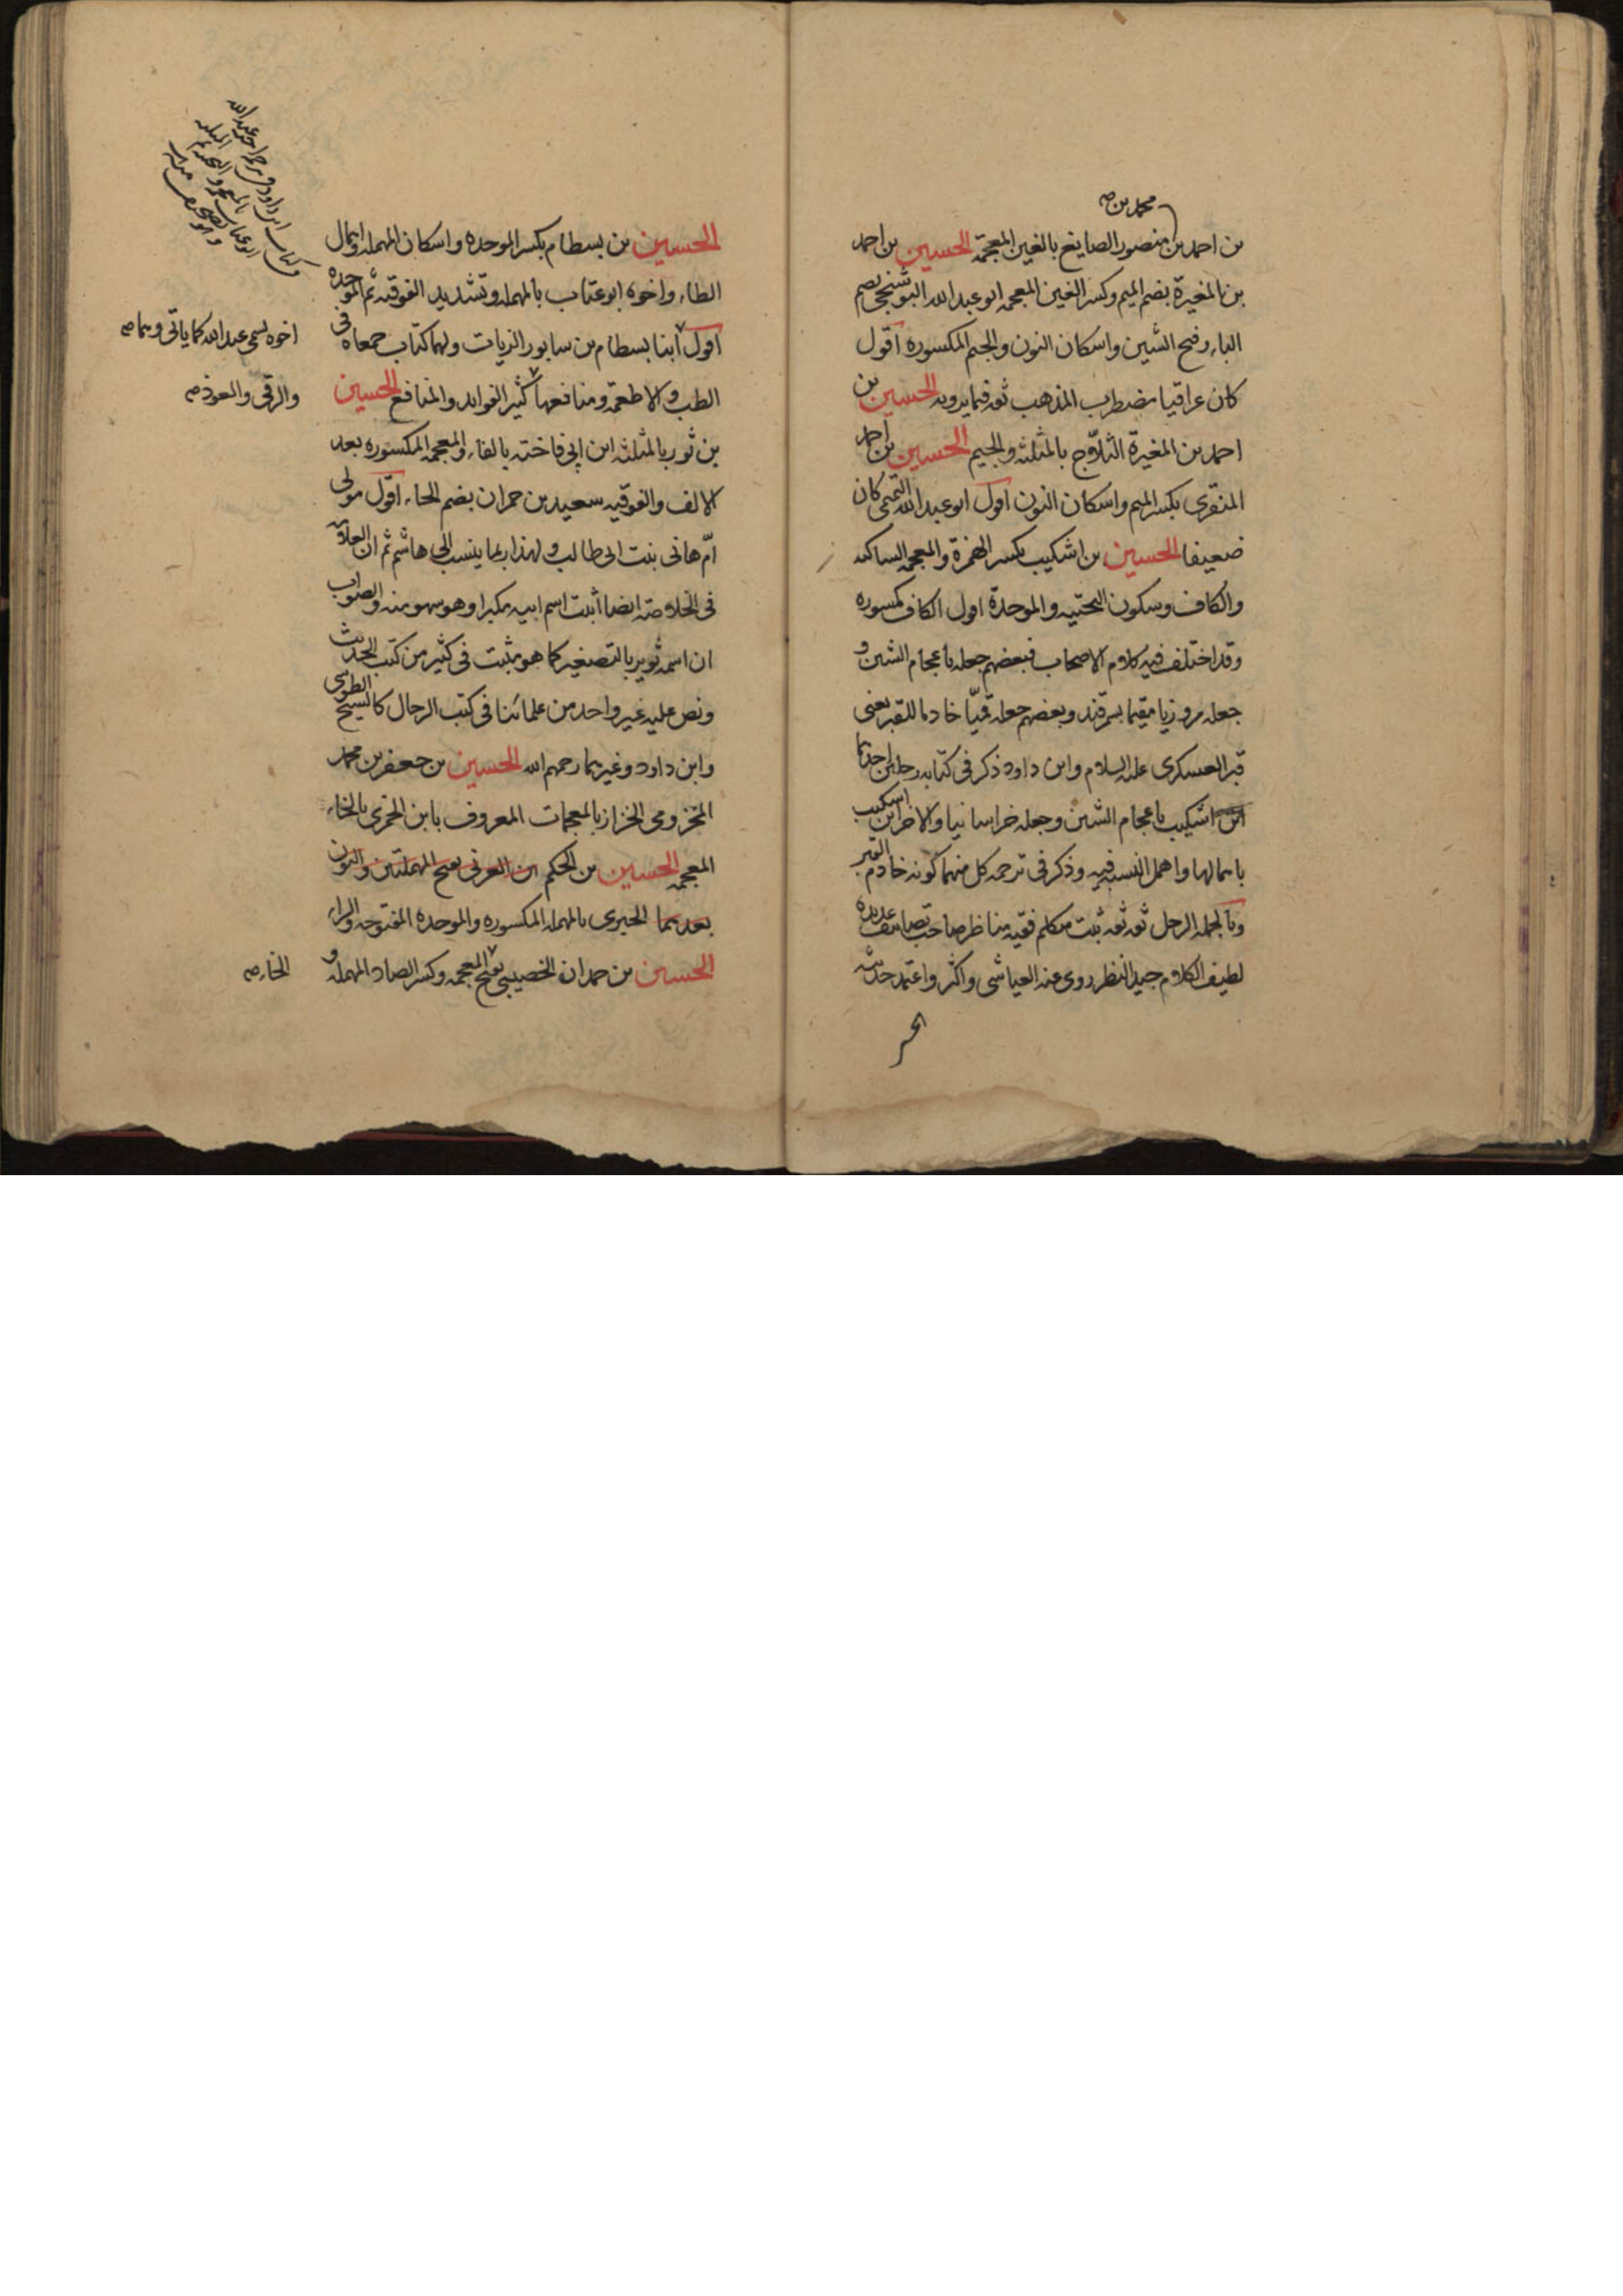 محمد بن صح
بن احمد بن منصور الصايغ بالغين المعجمة الحسين بن احمد
بن المغيرة بضم الميم وكسر الغين المعجمه ابو عبد الله البوشنجي بضم
الباء وفتح الشين واسكان النون والجيم المكسوره اقول
كان عراقيا مضطرب المذهب ثقه فيما يرويه الحسين بن
احمد بن المغيرة الثلاّج بالمثلثه والجيم الحسين بن احمد
المنقرى بكسر الميم واسكان النون اقول ابو عبد الله التميمى كان
ضعيفا الحسين بن اشكيب بكسر الهمزة والمعجمه الساكنه
والكاف وسكون التحتيه والموحدة اقول الكاف مكسوره
وقد اختلف فيه كلام الاصحاب فبعضهم جعله باعجام الشين و
جعله مروزيا مقيما بسمرقند وبعضهم جعله قميّا خادما للقبر يعنى
قبر العسكرى عليه السلام وابن داود ذكر فى كتابه رجلين احدهما
ابن اشكيب باعجام الشين وجعله خراسانيا والاخر ابن اسكيب
باهمالها واهمل النسبه فيه وذكر فى ترجمه كل منهما كونه خادم القبر
وبالجمله الرجل ثقه ثقه ثبت متكلم فقيه مناظر صاحب تصانيف عديده
لطيف الكلام جيد النظر روى عنه العياشى واكثر واعتمد حديثه
الحسين بن بسطام بكسر الموحده واسكان المهمله واهمال
الطاء واخوه ابو عتاب بالمهمله وتشديد الفوقيه ثم الموحده
اقول ابنا بسطام بن سابور الزيات ولهما كتاب جمعاه فى
اخوه يسمى عبد الله كما ياتى وهما صح
الطب والاطعمه ومنافعها كثير الفوايد والمنافع الحسين
والرقى والعوذ صح
بن ثور بالمثلثه ابن ابى فاخته بالفاء والمعجمه المكسوره بعد
الالف والفوقيه سعيد بن حمران بضم الحاء اقول مولى
امّ هانى بنت ابى طالب ولهذا ربما ينسب الى هاشم ثم ان العلامه
فى الخلاصه ايضا اثبت اسم ابيه مكبرا وهو سهو منه والصواب
ان اسمه ثوير بالتصغير كما هو مثبت فى كثير من كتب الحديث
ونص عليه غير واحد من علمائنا فى كتب الرجال كالشيخ الطوسى
وابن داود وغيرهما رحمهم الله الحسين بن جعفر بن محمد
المخزومى الخزاز بالمعجمات المعروف بابن الخمرى بالخاء
المعجمه الحسين بن الحكم ابن العرنى بفتح المهملتين والنون
بعدهما الحبرى بالمهمله المكسوره والموحده المفتوحه والراء
الحسين بن حمدان الخصيبى بفتح المعجمه وكسر الصاد المهمله و
الخاء صح